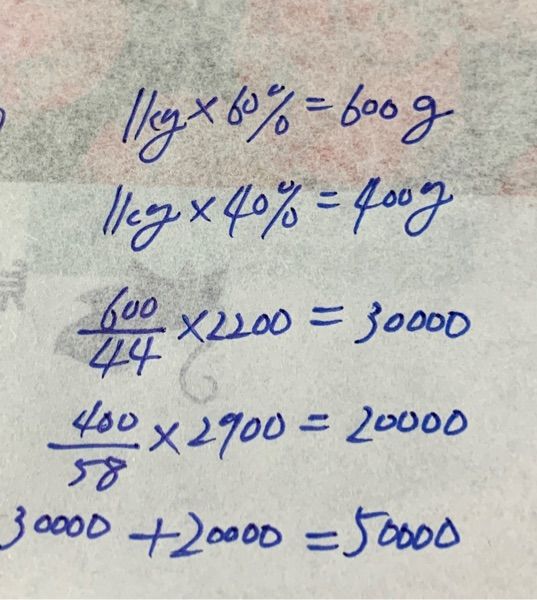 1kg×60%=600g
1kg×40%=400g
600/44×2200=30000
400/58×2900=20000
30000+20000=50000